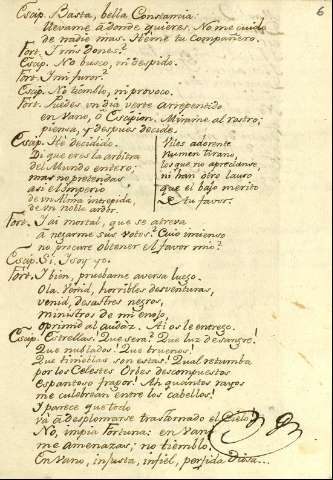 6
Escip. Basta, bella Constancia.
Llevame a donde quieres. No me cuido
de nadie mas. Heme tu Compañero.
Fort. I mis dones?
Escip. No busco, ni despido.
Fort. I mi furor?
Escip. No tiemblo, ni provoco.
Fort. Puedes un dia verte arrepentido
en vano, ò Escipion. Mirame al rostro;
piensa, y despues decide.
Escip. Hè decidido.
Di que eres la arbitra
del Mundo entero;
mas no pretendas
asi el Imperio
de un Alma intrepida,
de un noble ardor.
adorente
Numen tirano,
los que no apreciande,
ni han otro lauro
que el bajo merito
de tu favor.
Fort. I ai mortal, que se atreva
a negarme sus votos? Cuio
no procure obtener el favor mio?
Escip. Sì, I soy yo.
Fort. I bien, pruebame aversa luego.
Ola. Venid, horribles desventuras,
venid, desastres negros,
ministros de mi enojo,
oprimid al audàz. Ai os le entrego.
Escip. Estrellas! Que serà? Que luz de sangre!
Que nublados! Que truenos!
Que tinieblas son estas! Qual retumba
por los Celestes Orbes descompuestos
espantoso fragor! Ah quantos rayos
me culebrean entre los cabellos!
I parece que todo
và a desplomarse trastornado el Cielo.
No, impia Fortuna: en vano
me amenazas; no tiemblo.
En vano, injusta, infiel, perfida Diosa...